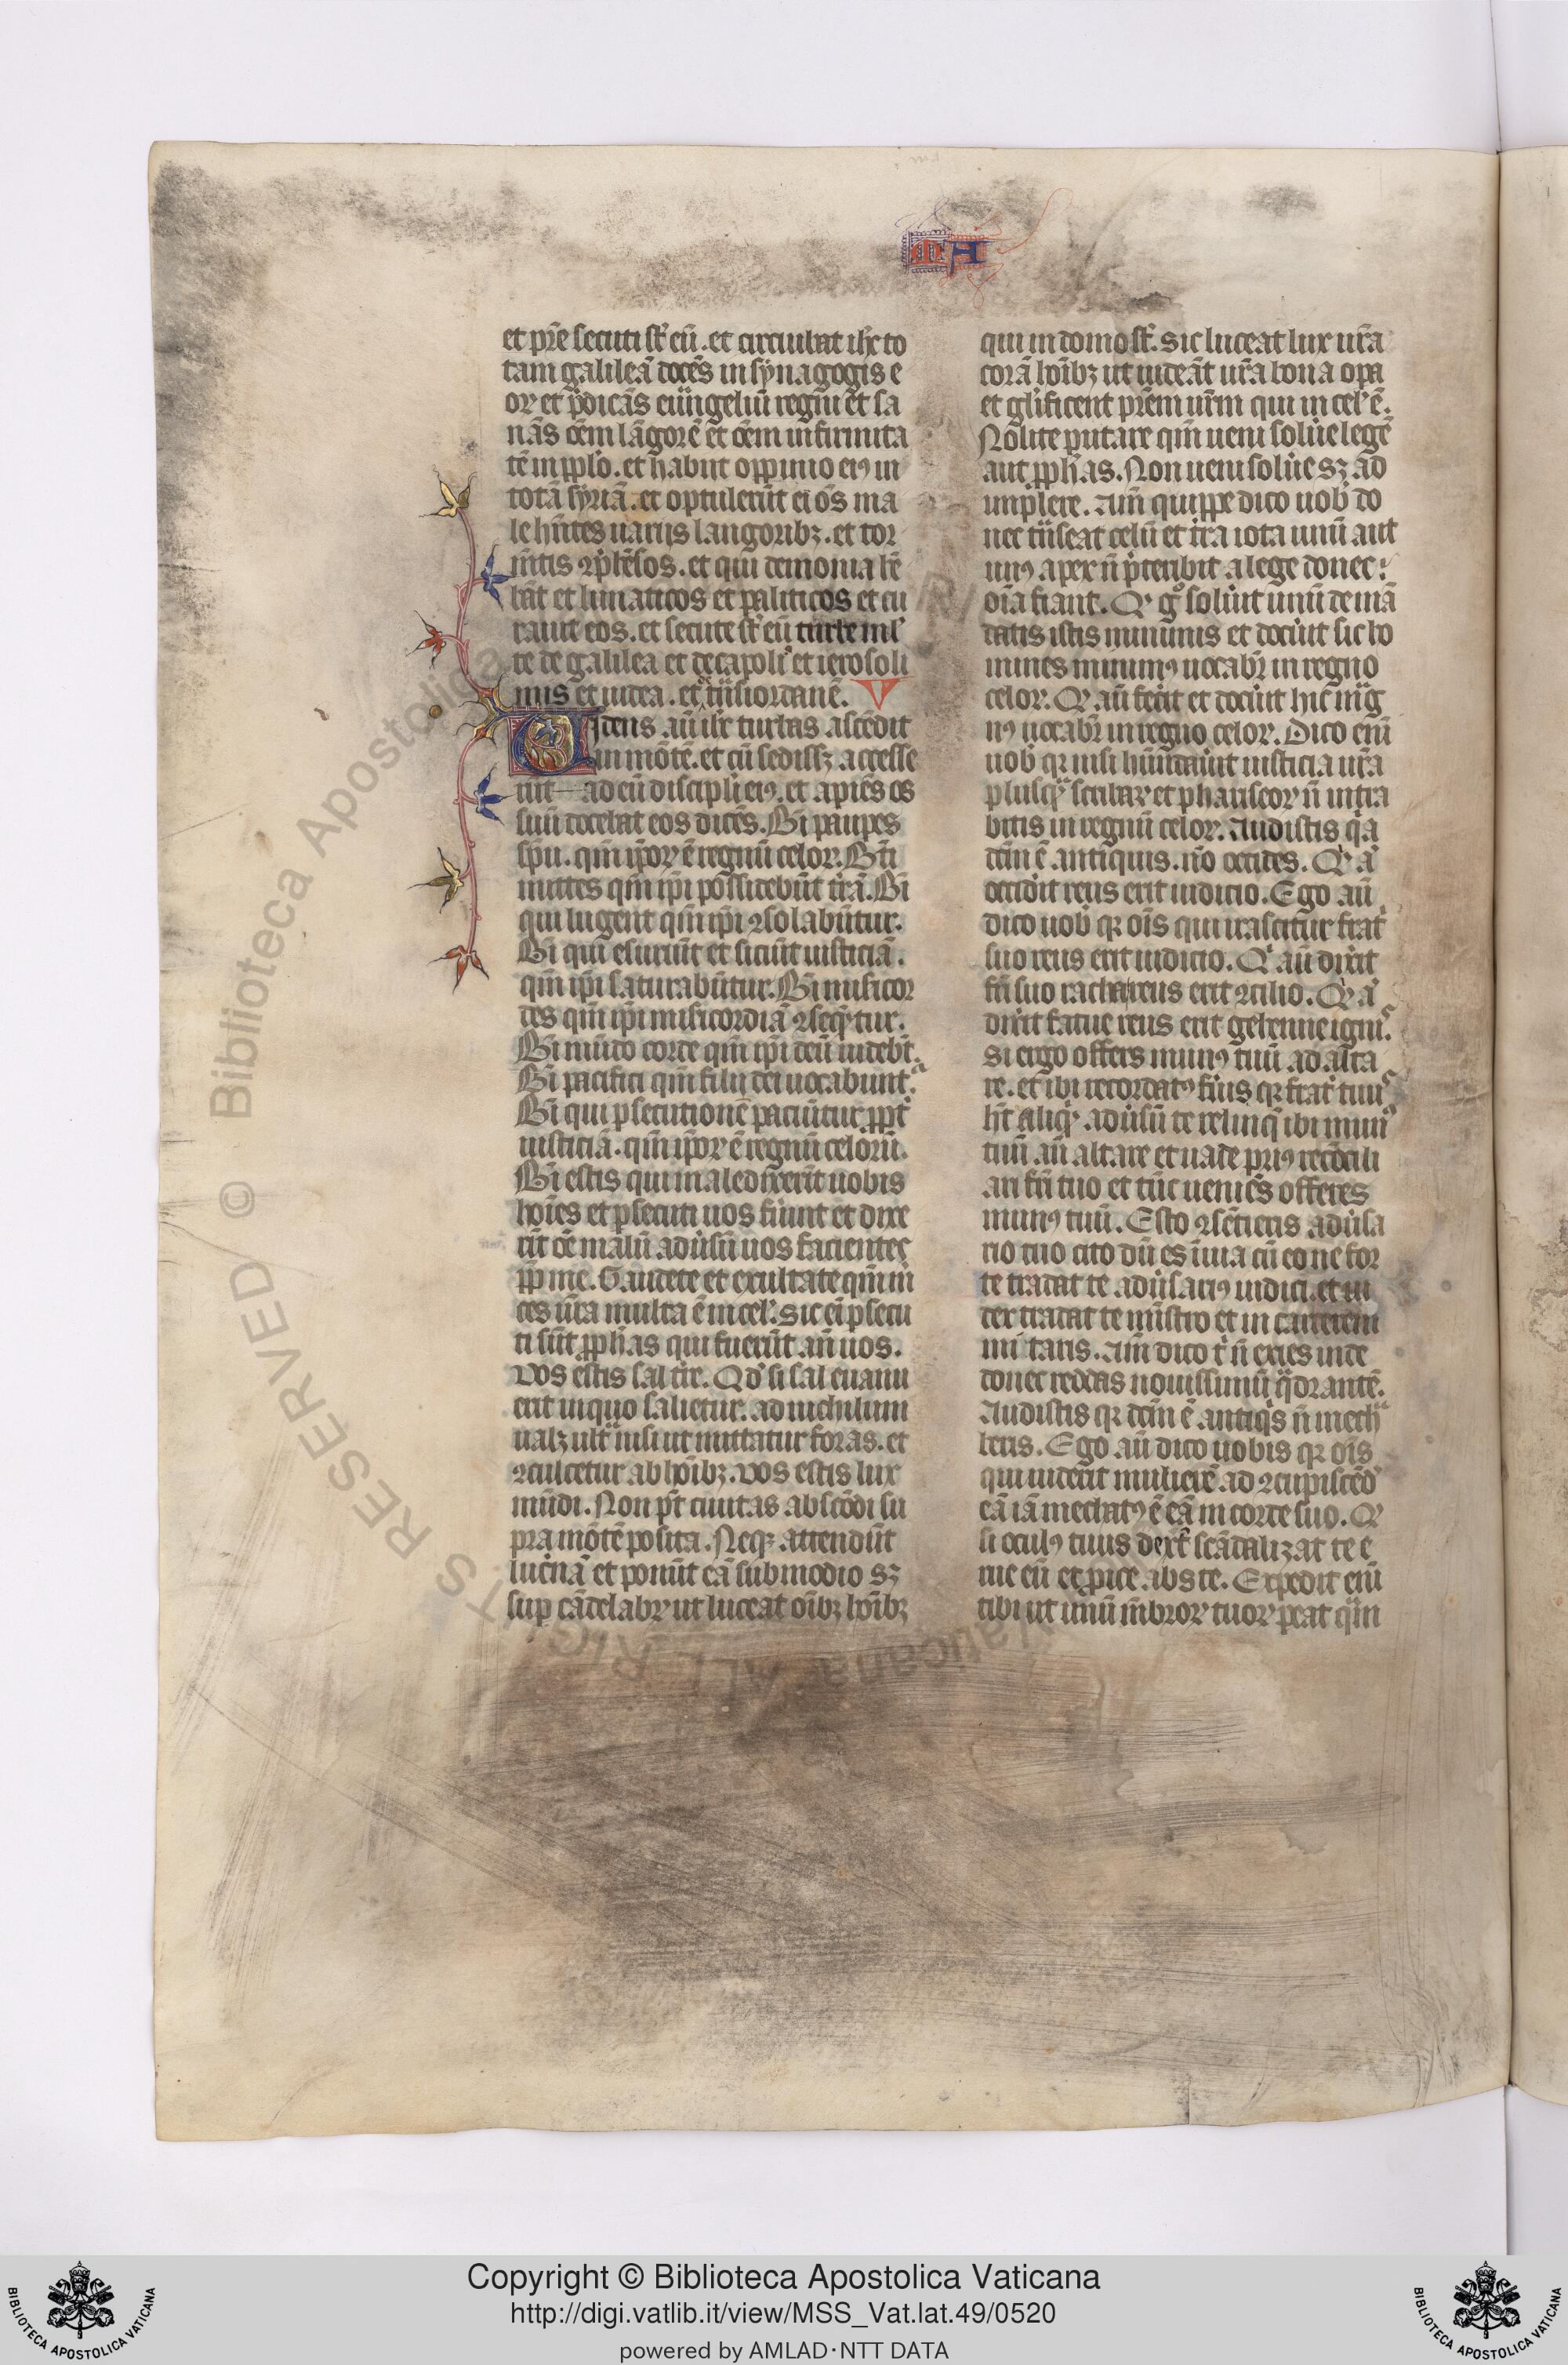 TH
et pr̄e secuti st̄ eū. et circuibat ih̄c to
tam galileā docēs in synagogis e
oꝝ et p̄dicās euūgeliū regni et sa
nās oēm lāgorē et oēm infirmita
tē in ppl̄o. et habiit oppinio eiꝰ in
totā syriā. et optulerūt ei oēs ma
le hn̄tes uariis langoribꝫ. et tor
m̄tis ꝯp̄hēsos. et qui demonia hē
bāt et lunaticos et paliticos et cu
rauit eos. et secute st̄ eū turbe ml̄
te de galilea et decapoli et ierosoli
mis et iudea. et t̄nsiordanē. V
Videns aū ih̄c turbas ascēdit
in mōtē. et cū sedissꝫ accesse
rūt ad eū discipl̄i eiꝰ. et apiēs os
suū docebat eos dicēs. Bn̄i paupes
sp̄u. qm̄ ip̄oꝝ ē regnū celoꝝ. Bt̄i
mittes qm̄ ip̄i possidebūt trā. Bn̄i
qui lugent qm̄ ip̄i ꝯsolabūtur.
Bn̄i qui esuriūt et siciūt iusticiā.
qm̄ ip̄i saturabūtur. Bn̄i misicor
des qm̄ ip̄i misicordiā ꝯseq̄tur.
Bn̄i mūdo corde qm̄ ip̄i deū uidebt̄.
Bn̄i pacifici qm̄ filii dei uocabunt̄.
Bn̄i qui psecutionē paciūtur ppt̄
iusticiā. qm̄ ip̄oꝝ ē regnū celorū.
Bn̄i estis qui maledixerīt uobis
hoīes et psecuti uos fuīnt et dixe
rīt oē malū adūsū uos facientes
pp̄ me. Gaudete et exultate qm̄ m̄
ces ūra multa ē in cel̄. Sic ei psecu
ti sūt pph̄as qui fuerūt an̄ uos.
Vos estis sal trē. Qd̄ si sal euanu
erit in quo salietur. ad nichilum
ualꝫ ult̄ nisi ut mittatur foras. et
ꝯculcetur ab hoībꝫ. Vos estis lux
mūdi. Non pt̄ ciuitas abscōdi su
pra mōtē posita. Neqꝫ attendūt
lucīnā et ponūt eā sub modio sꝫ
sup cādelabꝝ ut luceat oībꝫ hoībꝫ
qui in domo st̄. Sic luceat lux ur̄a
corā hoībꝫ ut uideāt ur̄a bona opa
et gl̄ificent prēm ur̄m qui in cel̄ ē.
Nolite putare qm̄ ueni soluē legē
aut pph̄as. Non ueni soluē sꝫ ad
implere. Am̄ quippe dico uob̄ do
nec t̄nseat celū et tr̄a iota unū aut
unꝰ apex n̄ p̄teribit a lege donec
oīa fiant. Qͥ gͦ soluīt unū de mā
datis istis minimis et docūit sic ho
mines minimꝰ uocabr̄ in regno
celoꝝ. Qͥ aū fecīt et docūit hic mḡ
nꝰ uocabr̄ in regno celoꝝ. Dico enī
uob̄ qꝛ nisi hūndaūit iusticia ur̄a
plusqͣ scribaꝝ et phariseoꝝ n̄ intra
bitis in regnū celoꝝ. Audistis qͥa
dcm̄ ē antiquis. nō occides. Qͥ aͫ
occidīt reus erit iudicio. Ego aū
dico uob̄ qꝛ oīs qui irascitur frat̄
suo reus erit iudicio. Qͥ aū dixīt
frī suo racha reus erit ꝯcilio. Qͥ aͫ
dixīt fatue reus erit gehenne ignis.
Si ergo offers munꝰ tuū ad alta
re. et ibi recordatꝰ fūis qꝛ frat̄ tuus
ht̄ aliqͥ adūsū te relinq̄ ibi munꝰ
tuū an̄ altare et uade priꝰ recōcili
ari frī tuo et tūc ueniēs offeres
munꝰ tuū. Esto ꝯsētiens adūsa
rio tuo cito dū es ī uia cū eo ne for
te tradat te adūsariꝰ iudici. et iu
dex tradat te mīstro et in carcerem
mitaris. Am̄ dico t̄ n̄ exies inde
donec reddas nouissimū qͣdrantē.
Audistis qꝛ dcm̄ ē antiqͥs n̄ mech
beris. Ego aū dico uobis qꝛ oīs
qui uiderīt mulierē ad ꝯcupiscēdͣ
eā iā mechatꝰ ē eā in corde suo. Qͩ
si oculꝰ tuus dext̄ scādalizat te e
rue eū et pice abs te. Expedit enī
tibi ut unū mb̄roꝝ tuoꝝ peat qͣm
© Biblioteca Apostolica Vaticana ALL RIGHTS RESERVED
Copyright © Biblioteca Apostolica Vaticana
http://digi.vatlib.it/view/MSS_Vat.lat.49/0520
powered by AMLAD·NTT DATA
BIBLIOTECA APOSTOLICA VATICANA
BIBLIOTECA APOSTOLICA VATICANA